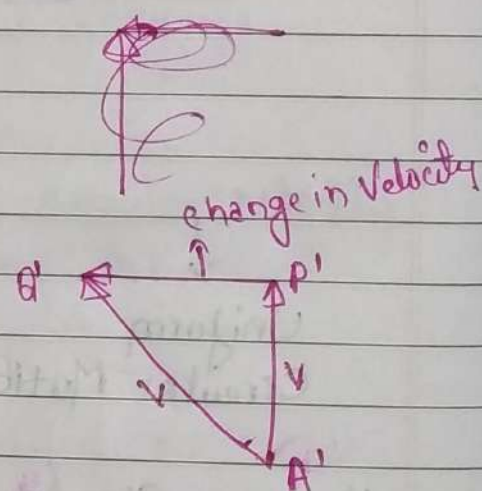 change in Velocity
Q' P'
V V
A'